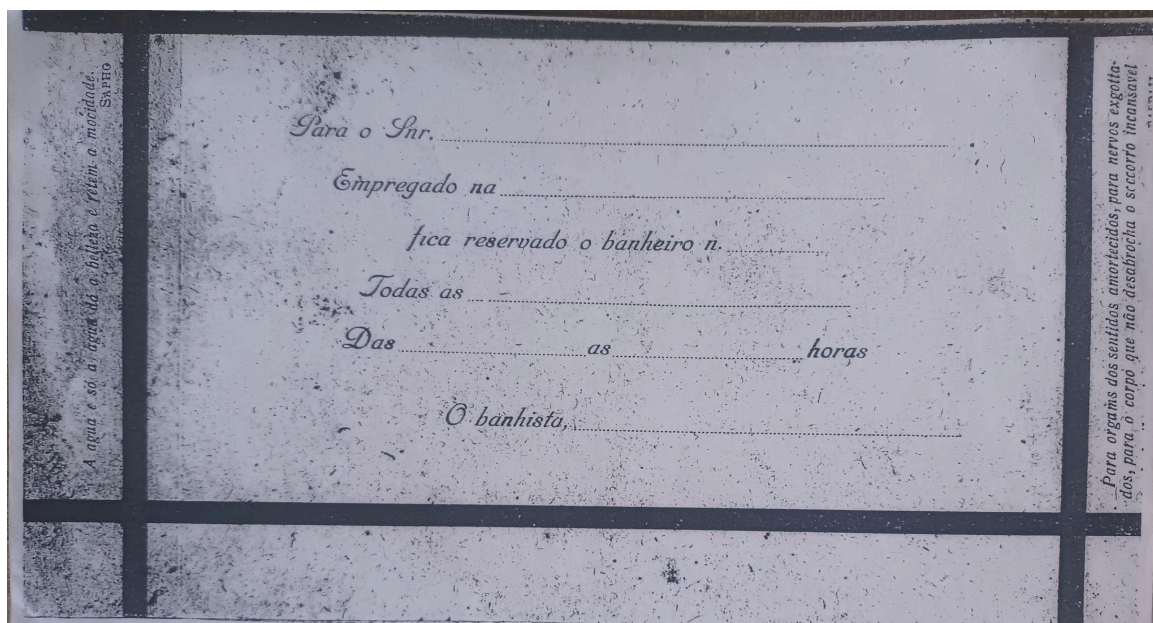 A agua e só a agua dá a belleza e retem a mocidade.
SAPHO
Para o Snr.
Empregado na
fica reservado o banheiro n.
Todas as
Das as horas
O banhista,
Para orgams dos sentidos amortecidos, para nervos exgotta-
dos, para o corpo que não desabrocha o scccorro incansavel